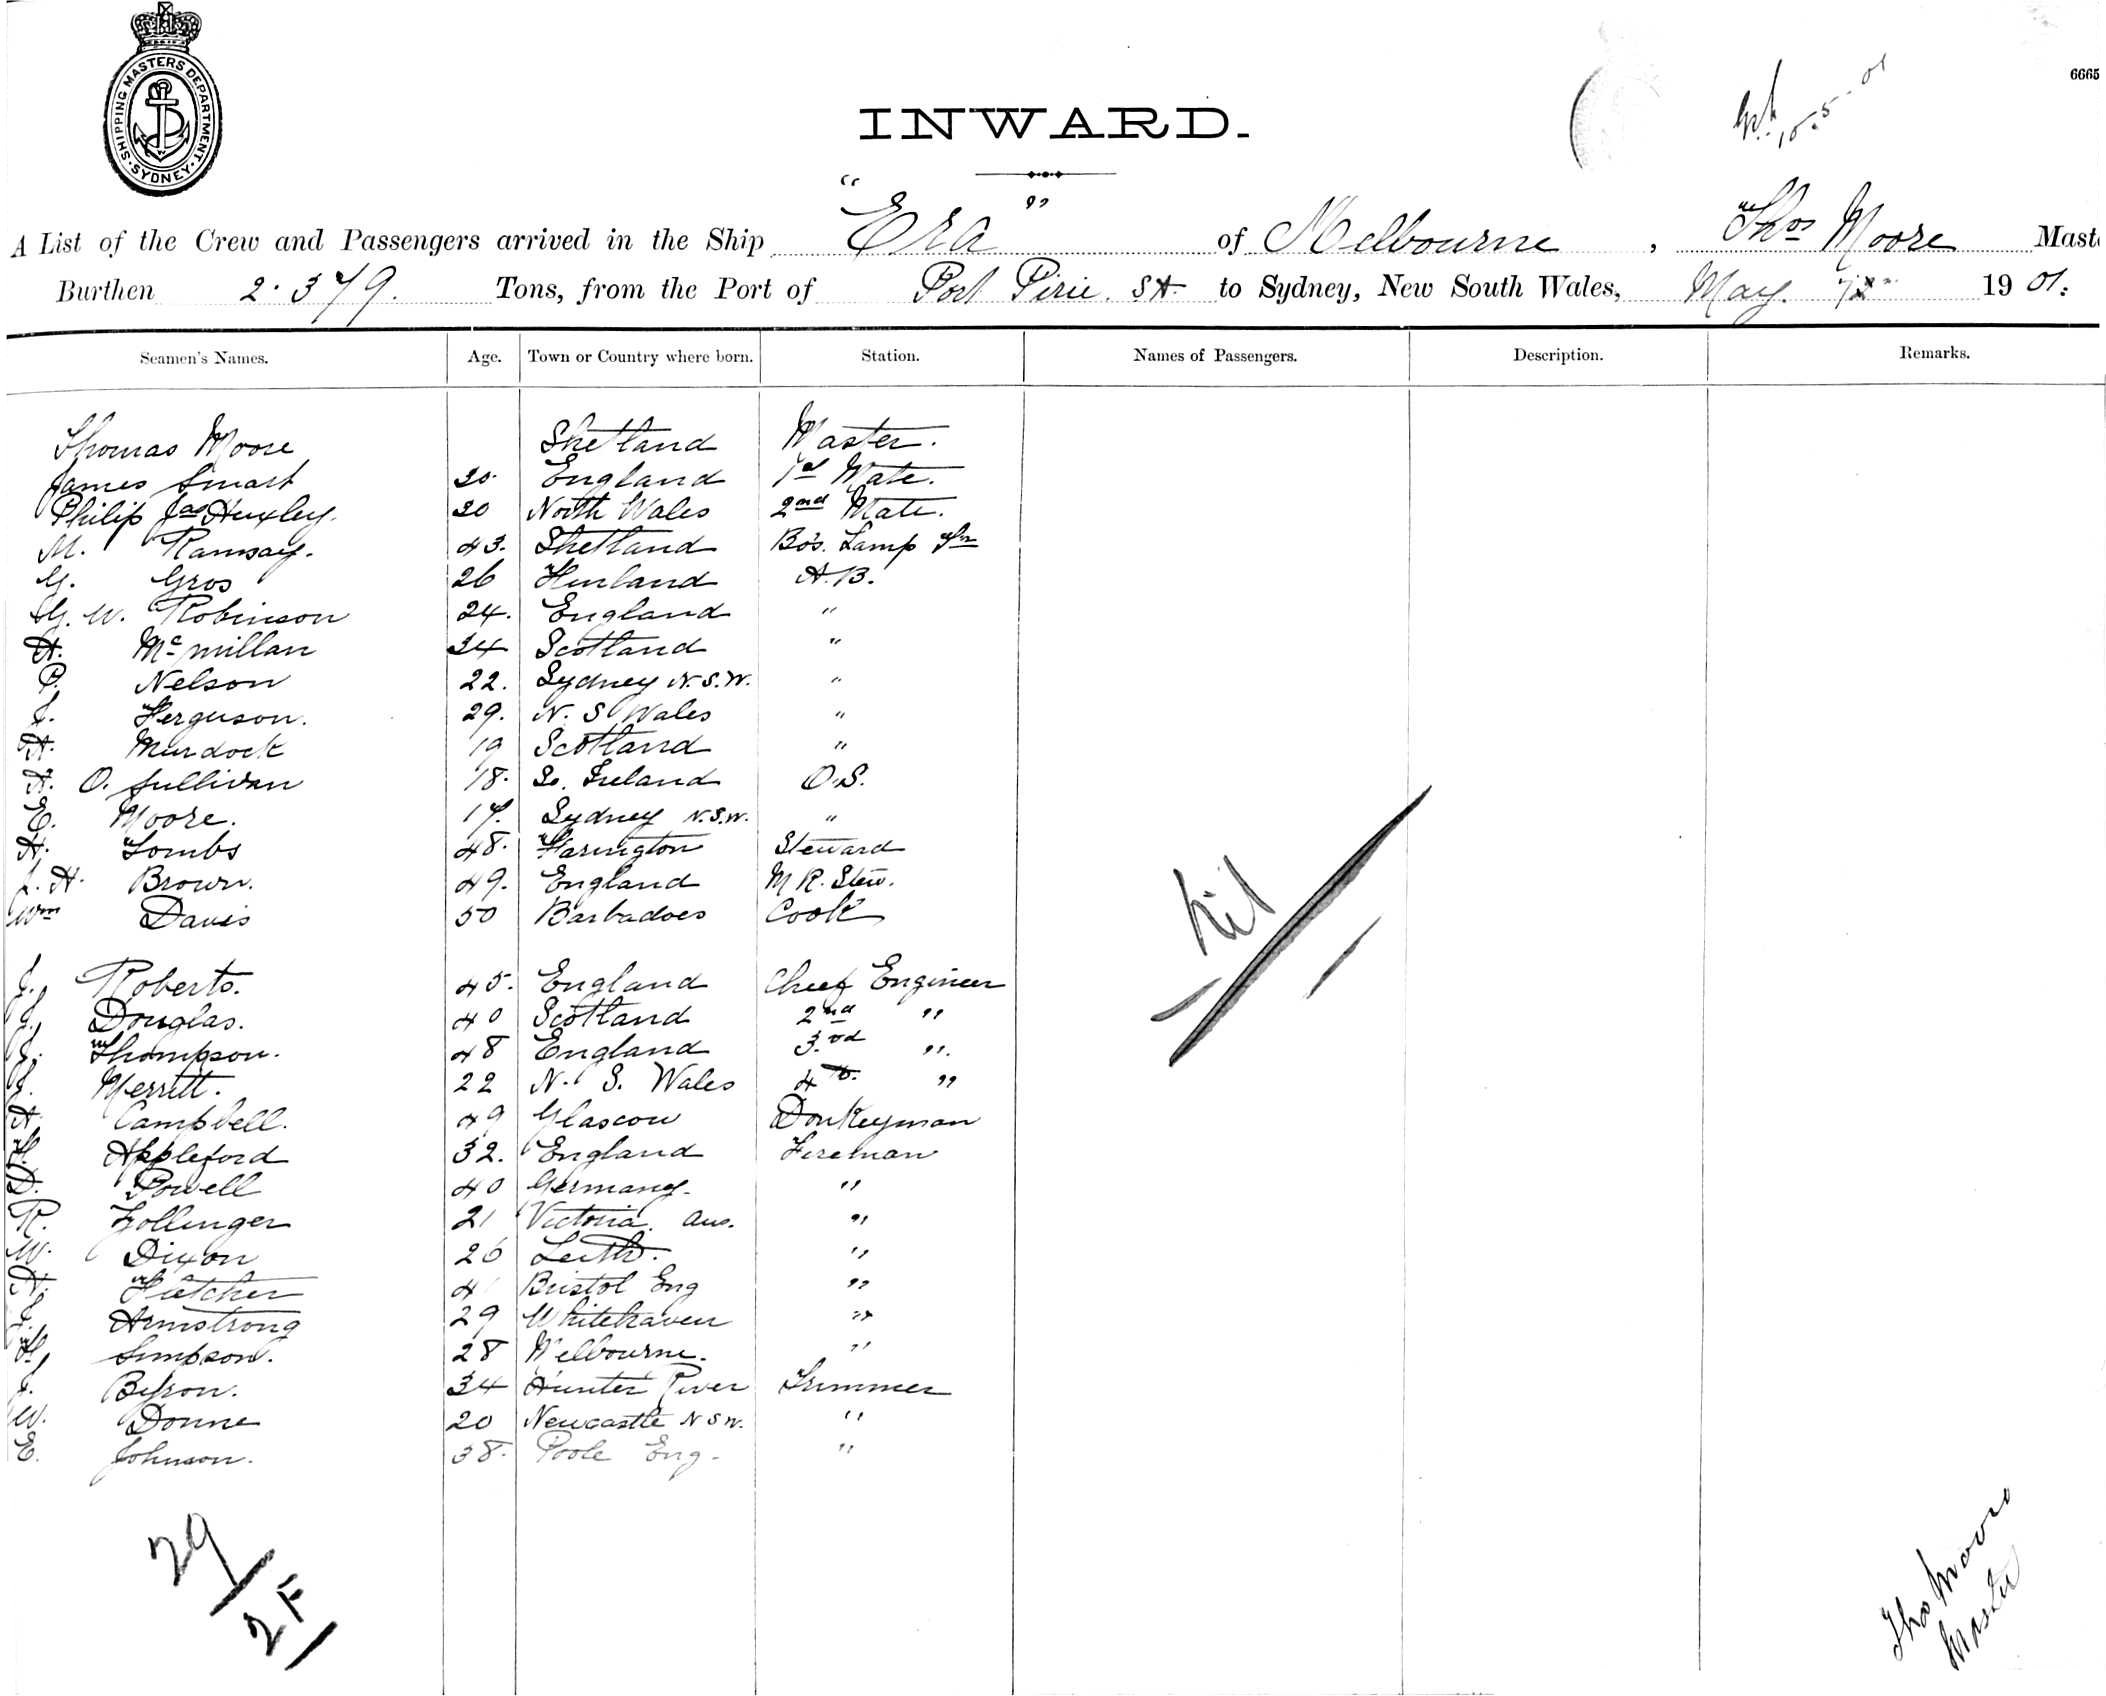 SHIPPING MASTERS DEPARTMENT. SYDNEY.
6665
15-5-01
INWARD.
A List of the Crew and Passengers arrived in the Ship "Era" of Melbourne, Thos Moore Maste
Burthen 2.379. Tons, from the Port of Port Pirie. SA. to Sydney, New South Wales, May 1901.
Seamen's Names. Age. Town or Country where born. Station. Names of Passengers. Description. Remarks.
Thomas Moore Shetland Master.
James Smart 30. England 1st Mate.
Philip Jas Huxley. 30 North Wales 2nd Mate.
M. Ramsay. 43. Shetland Bos. Lamp Tr
G. Gros 26 Finland A.B.
G. W. Robinson 24. England "
A. McMillan 34 Scotland "
P. Nelson 22. Sydney N.S.W. "
J. Ferguson. 29. N. S Wales "
A. Murdock 19 Scotland "
A. O. Sullivan 18. So. Ireland O.S.
E. Moore. 17. Sydney N.S.W. "
A. Tombs 48. Farington Steward
J. H. Brown. 49. England M R. Stew.
Wm Davis 50 Barbadoes Cook
nil
J. Roberts. 45. England Cheef Engineer
J. Douglas. 40 Scotland 2nd "
J. Thompson. 48 England 3.rd ".
J. Merritt. 22 N. S. Wales 4th "
A Campbell. 49 Glascow Donkeyman
F. Appleford 32. England Fireman
D. Powell 40 Germany. "
R. Zollinger 21 Victoria. Aus. "
W. Dixon 26 Leith. "
A. Fletcher 41 Bristol Eng "
J. Armstrong 29 Whitehaven "
H. Simpson. 28 Melbourne. "
J. Byron. 34 Hunter River Trimmer
W. Donne 20 Newcastle N S W. "
E. Johnson. 38. Poole Eng. "
29
2F
Tho Moore
Master